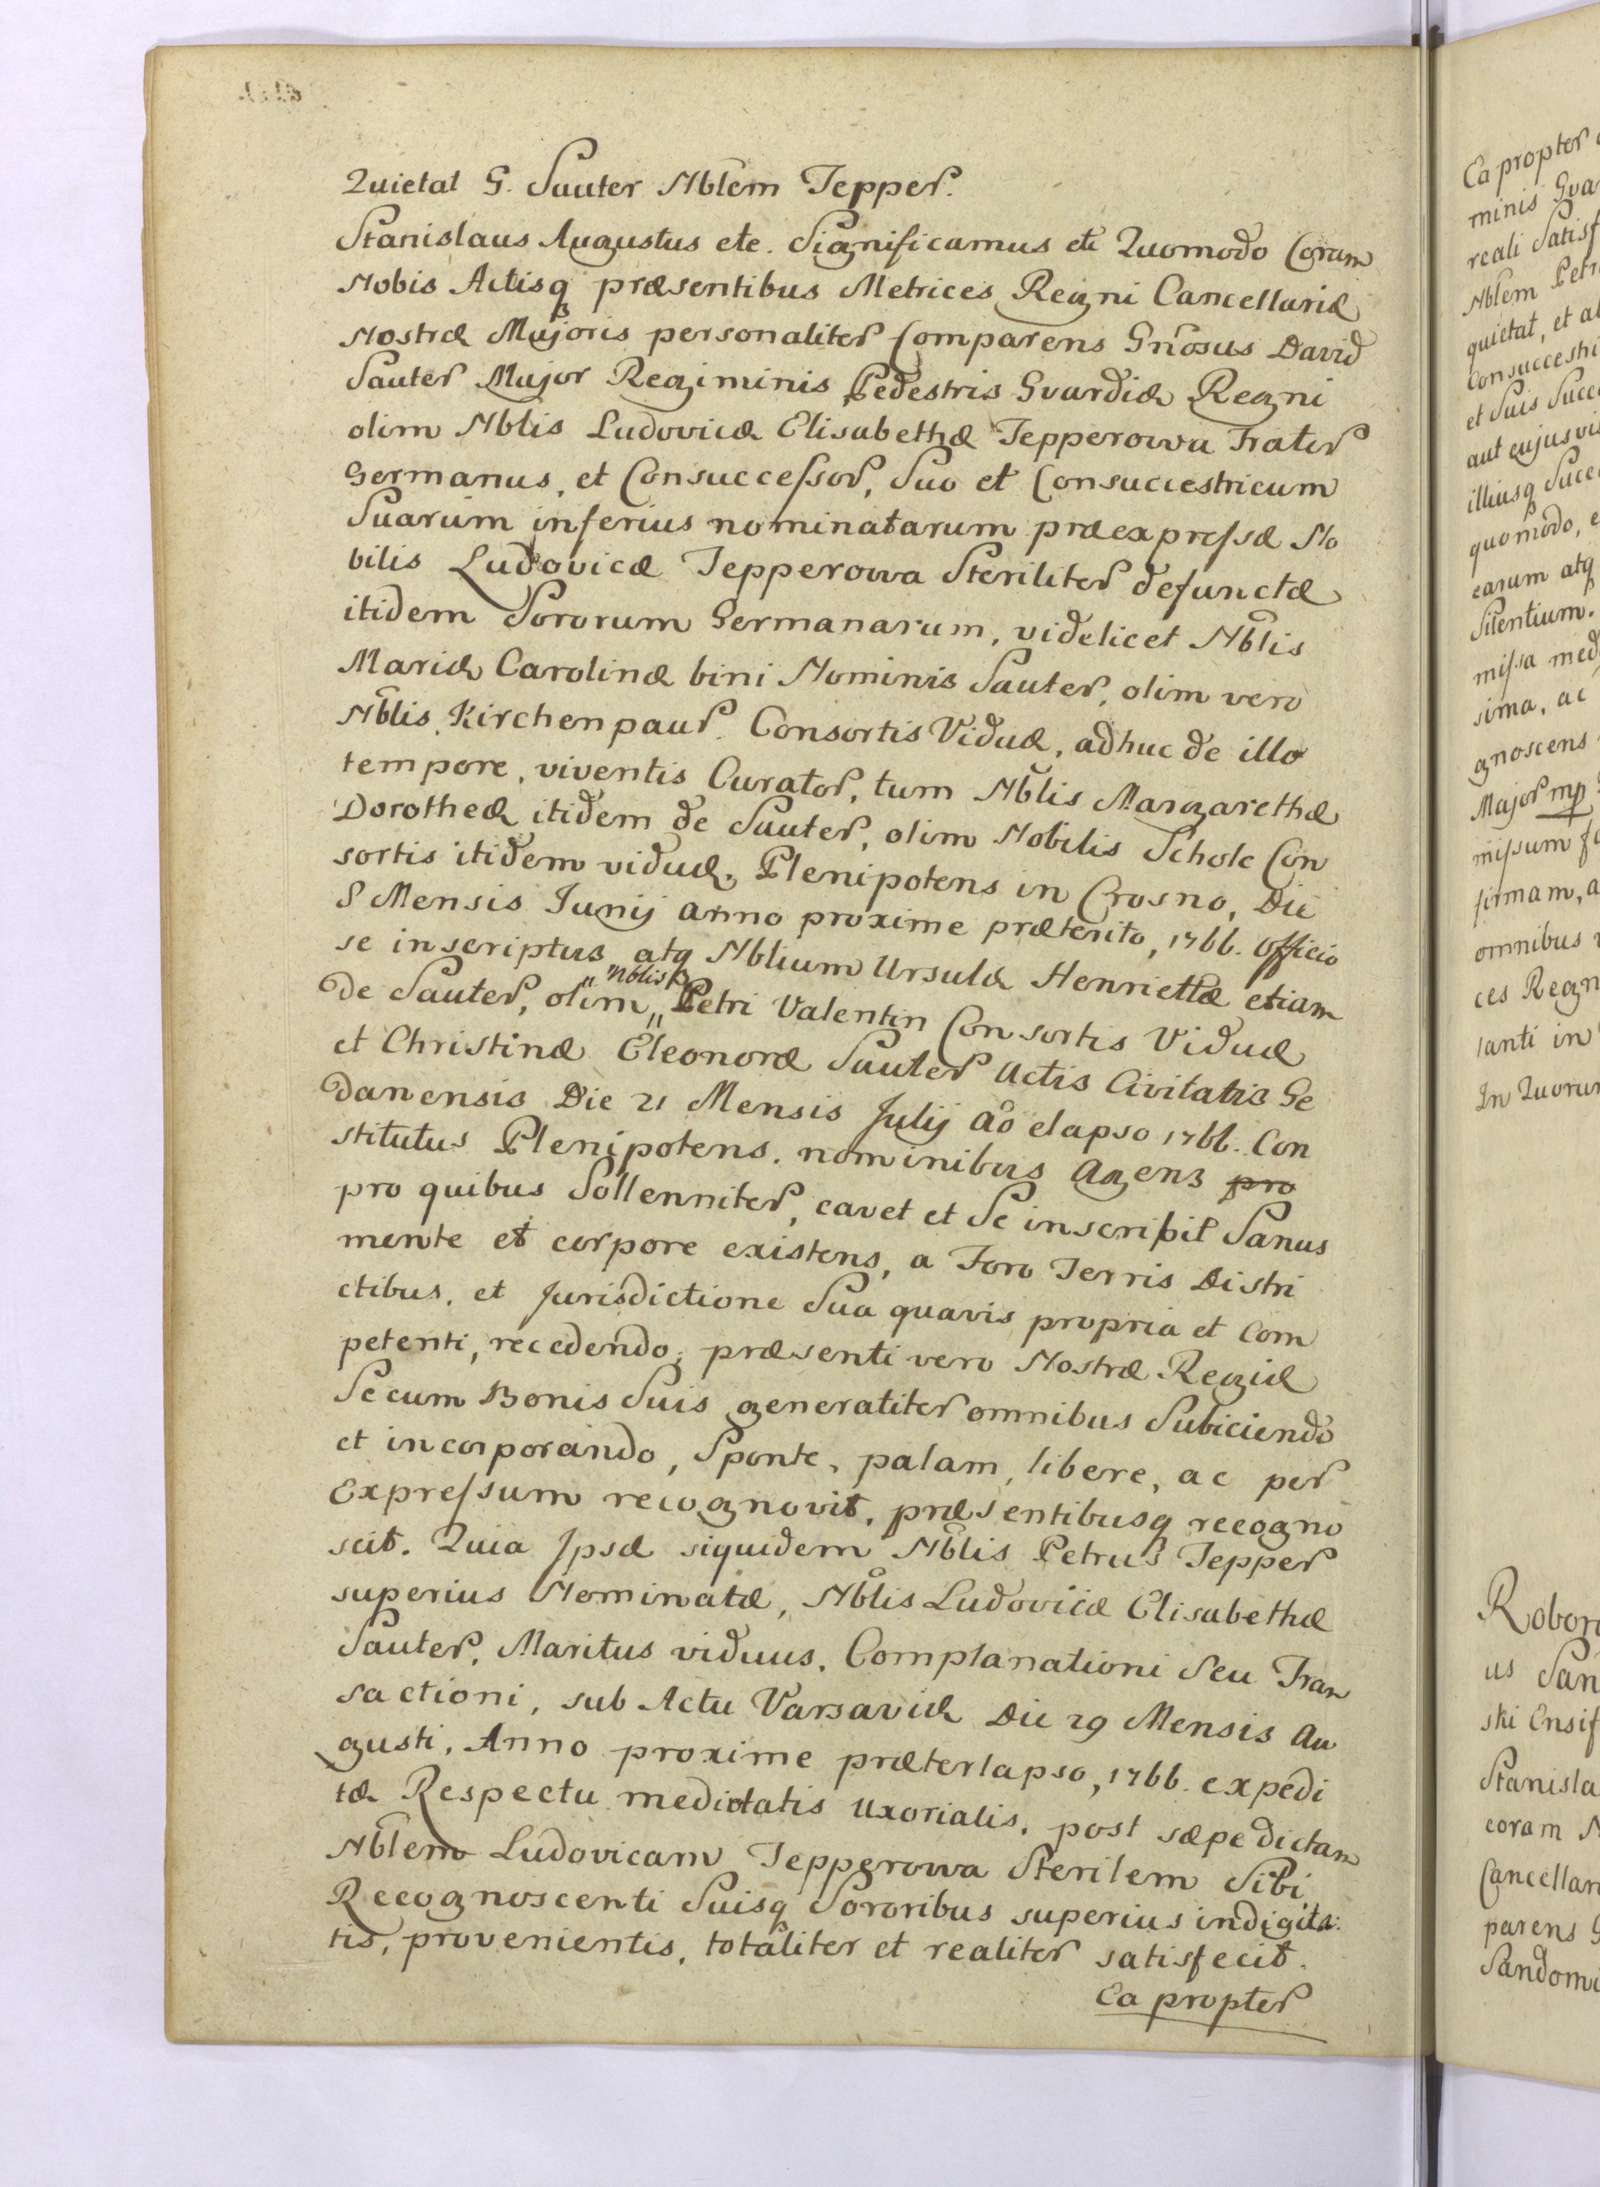 Quietat G. Sauter Nblem Tepper.
Stanislaus Augustus etc. Significamus etc Quomodo Coram
Nobis Actisq præsentibus Metrices Regni Cancellariæ
Nostræ Majoris personaliter Comparens Gnosus David
Sauter Major Regiminis Pedestris Gvardiæ Regni
olim Nblis Ludovicæ Elisabethæ Tepperowa Frater
Germanus, et Consuccessor, Suo et Consuccestricum
Suarum inferius nominatarum præexpressæ No
bilis Ludovicæ Tepperowa Steriliter defunctæ
itidem Sororum Germanarum, videlicet Nblis
Mariæ Carolinæ bini Nominis Sauter, olim vero
Nblis Kirchenpaur Consortis Viduæ, adhuc de illo
tempore, viventis Curator, tum Nblis Margarethæ
Dorotheæ itidem de Sauter, olim Nobilis Scholc Con
sortis itidem viduæ, Plenipotens in Crosno, Die
8 Mensis Junij anno proxime præterito, 1766. officio
se inscriptus atq Nblium Ursulæ Henriettæ etiam
de Sauter, olim " Nblis " Petri Valentin Consortis Viduæ
et Christinæ Eleonoræ Sauter Actis Civitatis Ge
danensis Die 21 Mensis Julij Ao elapso 1766. Con
stitutus Plenipotens. nominibus Agens pro
pro quibus Sollenniter, cavet et Se inscribit Sanus
mente et corpore existens, a Foro Terris Distri
ctibus, et Jurisdictione Sua quavis propria et Com
petenti, recedendo; præsenti vero Nostræ Regiæ
Se cum Bonis Suis generaliter omnibus Subiciendo
et incorporando, Sponte, palam, libere, ac per
Expressum recognovit, præsentibusq recogno
scit. Quia Ipsæ siquidem Nblis Petrus Tepper
superius Nominatæ, Nblis Ludovicæ Elisabethæ
Sauter, Maritus viduus, Complanationi Seu Tran
sactioni, sub Actu Varsaviæ Die 29 Mensis Au
gusti, Anno proxime præterlapso, 1766. expedi
tæ Respectu medietatis uxorialis, post sæpe dictam
Nblem Ludovicam Tepperowa Sterilem Sibi
Recognoscenti Suisq Sororibus superius indigita
tis, provenientis, totaliter et realiter satisfecit.
Ea propter
Ea propter
minis Gva
reali Satisf
Nblem Petr
quietat, et a
Consuccestri
et Suis Succ
aut cujusvis
illiusq Succe
quomodo, e
earum atq
Silentium.
missa med
sima, ac
gnoscens
Major mp
missum f
firmam, a
omnibus
ces Regn
santi in
In Quorum
Robor
us San
ski Ensif
Stanisla
coram N
Cancellar
parens G
Sandomi